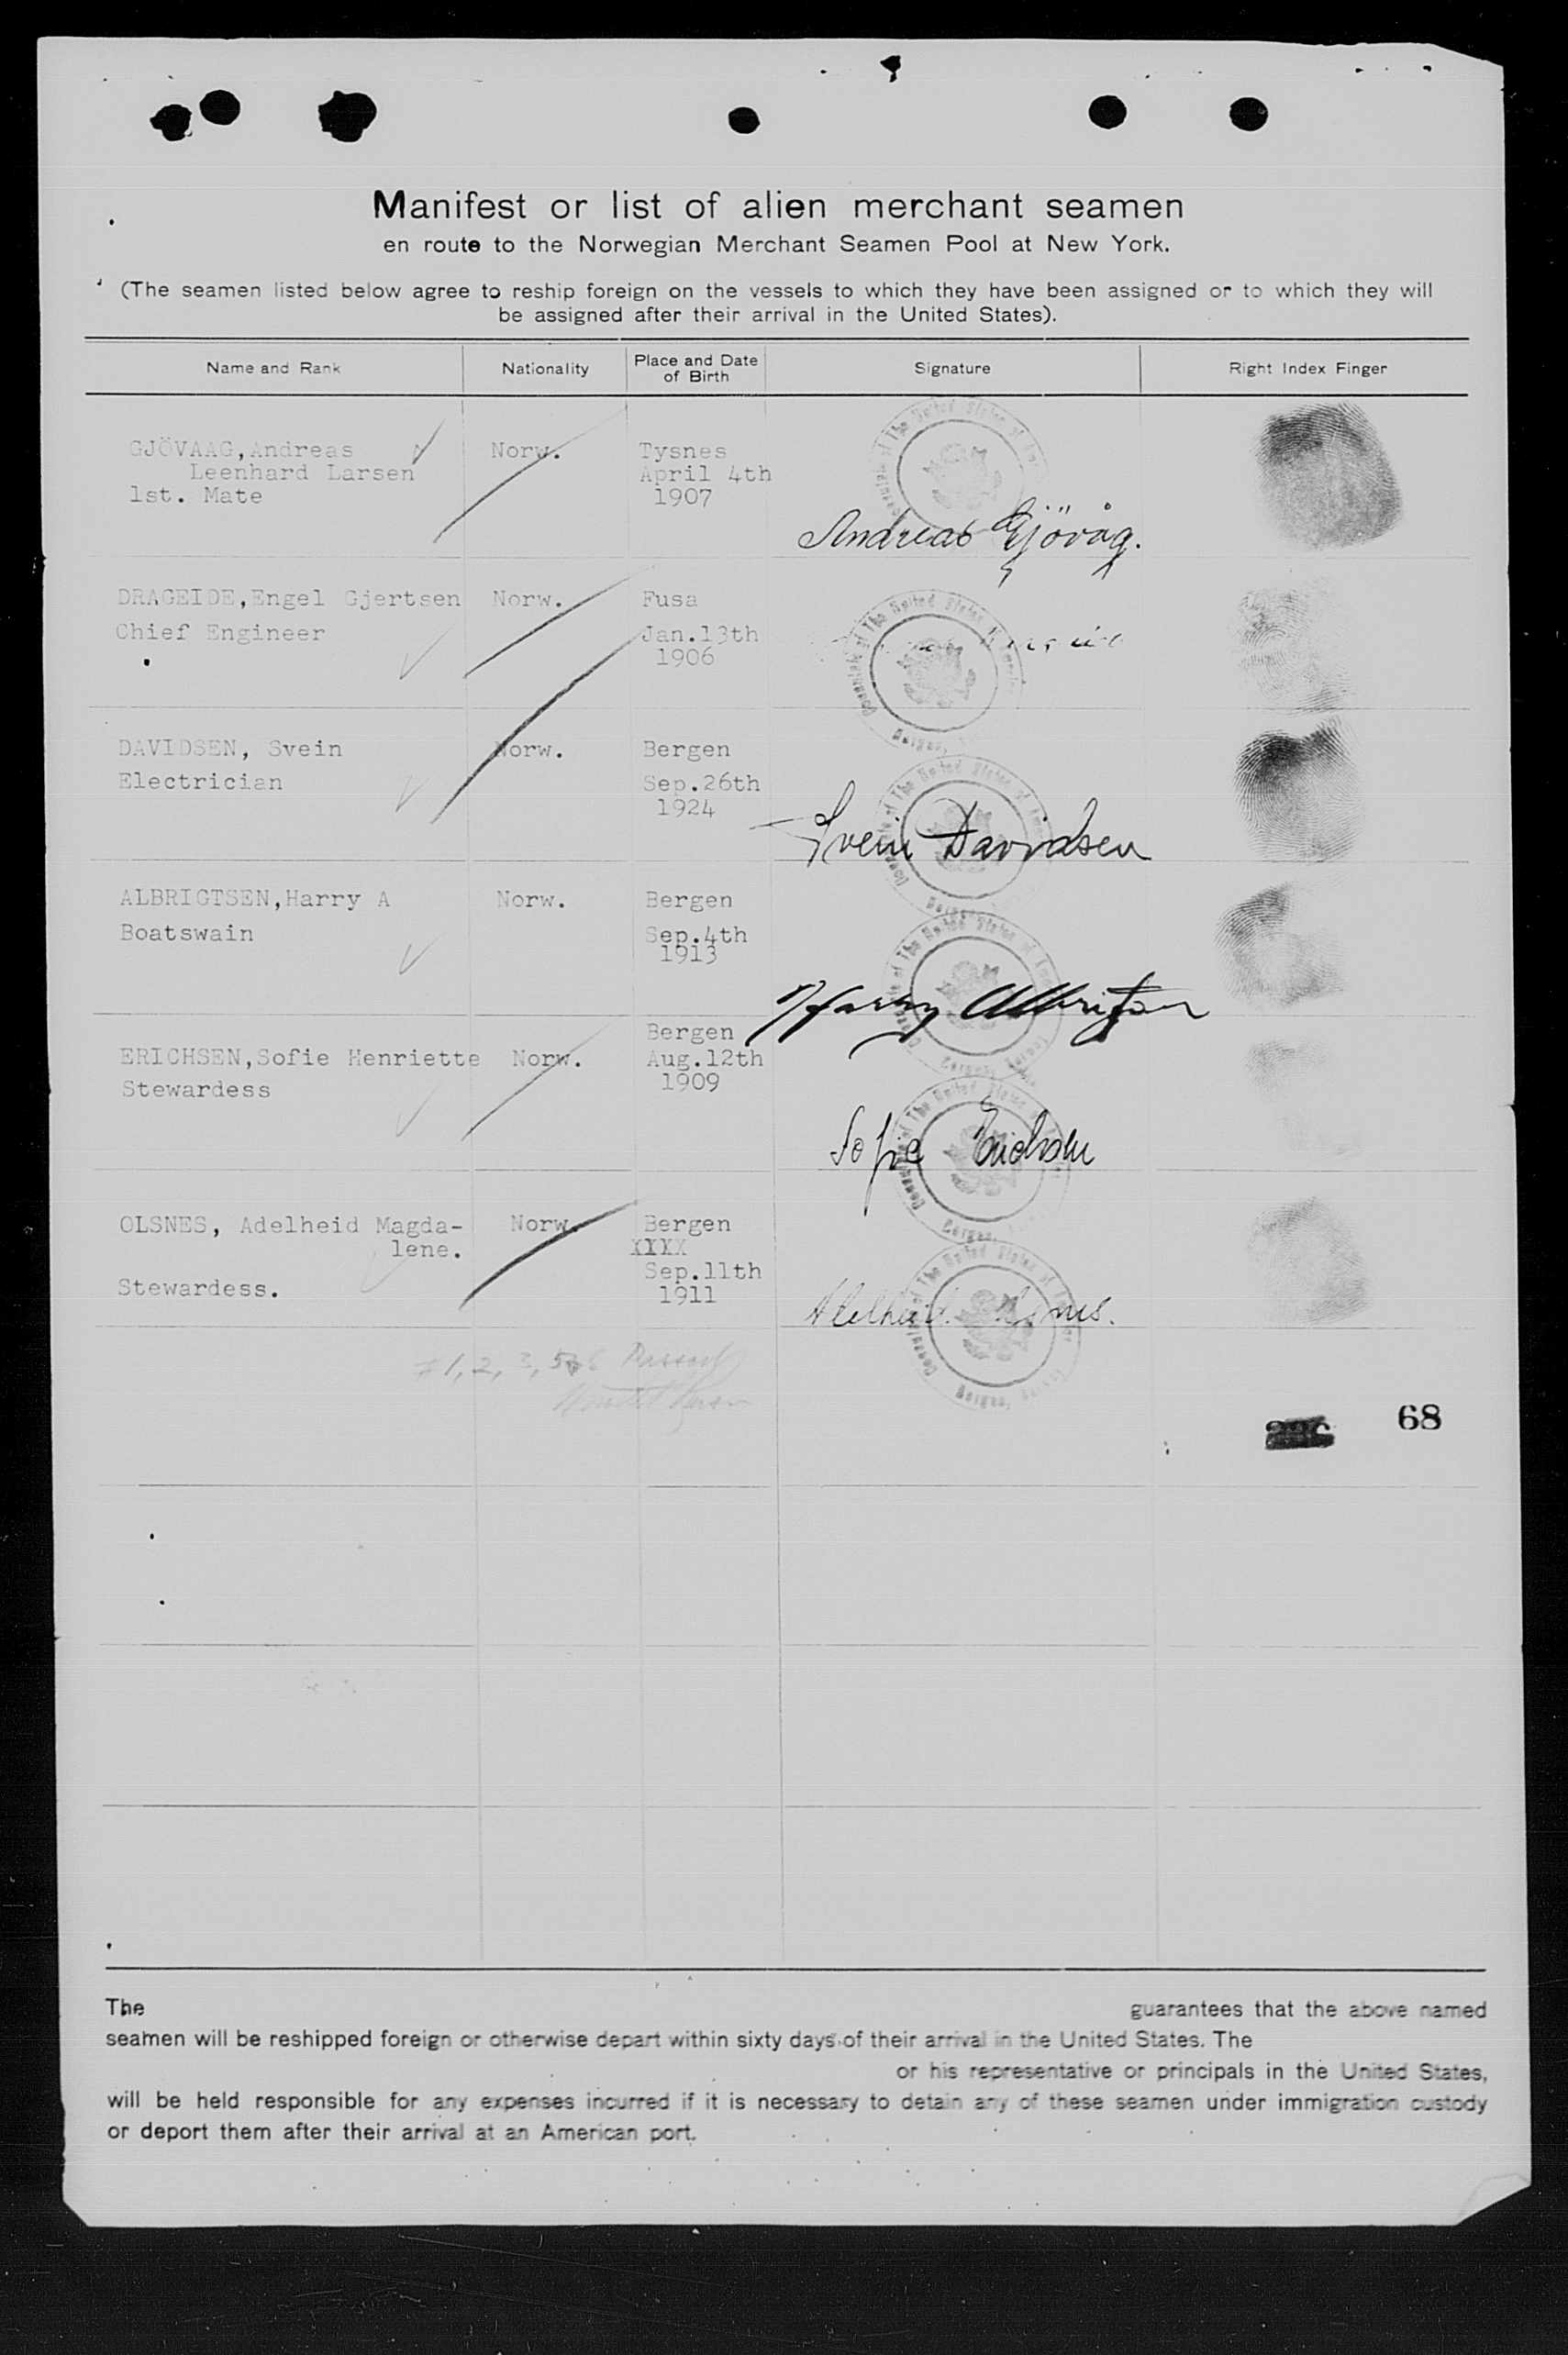 Manifest or list of alien merchant seamen
en route to the Norwegian Merchant Seamen Pool at New York.
(The seamen listed below agree to reship foreign on the vessels to which they have been assigned or to which they will
be assigned after their arrival in the United States).
Name and Rank
Nationality
Place and Date
of Birth
Signature
Right Index Finger
GJÖVAAG, Andreas
Leenhard Larsen
1st. Mate
Norw.
Tysnes
April 4th
1907
Andreas Gjövåg.
DRAGEIDE, Engel Gjertsen
Chief Engineer
Norw.
Fusa
Jan.13th
1906
DAVIDSEN, Svein
Electrician
Norw.
Bergen
Sep.26th
1924
Svein Davidsen
ALBRIGTSEN, Harry A
Boatswain
Norw.
Bergen
Sep.4th
1913
Harry Albrigtsen
ERICHSEN, Sofie Henriette
Stewardess
Norw.
Bergen
Aug.12th
1909
Sofie Erichsen
OLSNES, Adelheid Magda-
lene.
Stewardess.
Norw.
Bergen
XXXX
Sep.11th
1911
Adelheid Olsnes.
#1, 2, 3, 5, 6 Passed
68
The guarantees that the above named
seamen will be reshipped foreign or otherwise depart within sixty days of their arrival in the United States. The
or his representative or principals in the United States,
will be held responsible for any expenses incurred if it is necessary to detain any of these seamen under immigration custody
or deport them after their arrival at an American port.